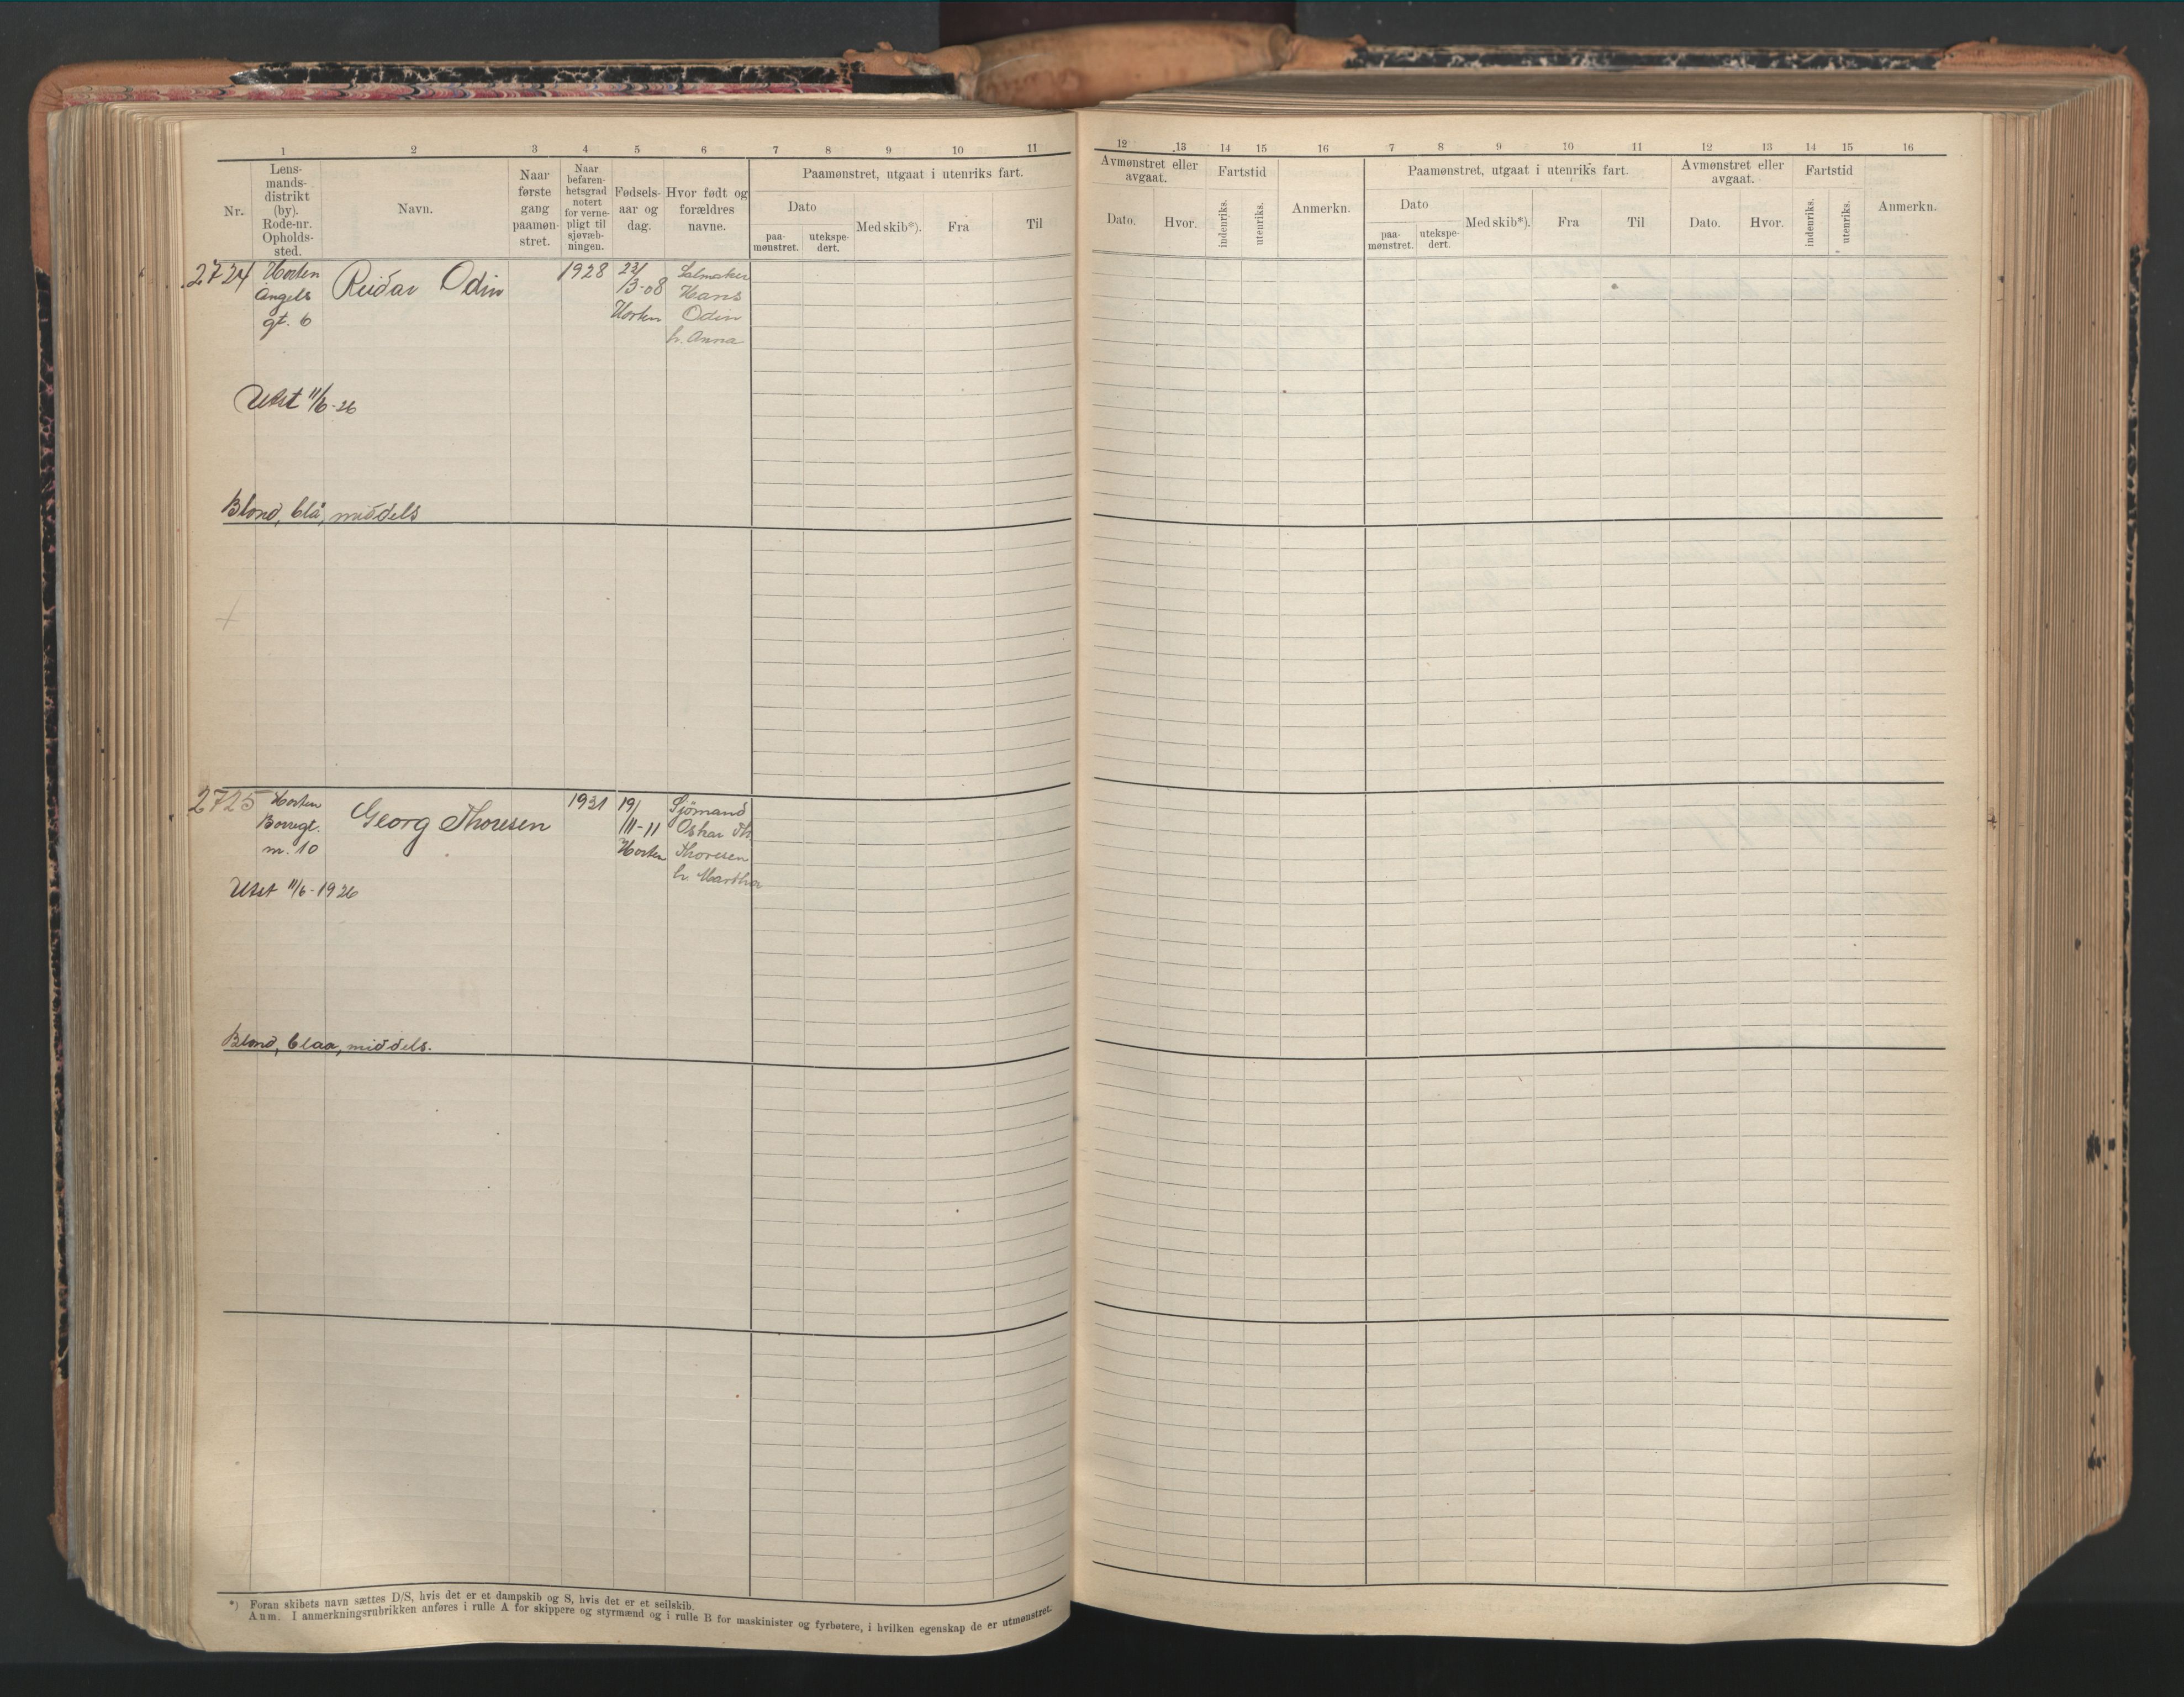 1 2 3 4 5 6 7 8 9 10 11
Nr.
Lens-
mands-
distrikt
(by).
Rode-nr.
Opholds-
sted.
Navn.
Naar
første
gang
paamøn-
stret.
Naar
befaren-
hetsgrad
notert
for verne-
pligt til
sjøvæb-
ningen.
Fødsels-
aar og
dag.
Hvor født og
forældres
navne.
Paamønstret, utgaat i utenriks fart.
Dato
paa-
mønstret.
utekspe-
dert.
Med skib*).
Fra
Til
2724
Horten
Angels
gt. 6
Reidar Odin
1928
23/
/3-08
Horten
Salmaker
Hans
Odin
h. Anna
Utst 11/6-26
Blond, blå, middels
2725
Horten
Borregt.
nr. 10
Georg Thoresen
1931
19/
/III-11
Horten
Sjömand
Oskar Th.
Thoresen
h. Martha
Utst 11/6-1926
Blond, blaa, middels.
*) Foran skibets navn sættes D/S, hvis det er et dampskib og S, hvis det er et seilskib.
Anm. I anmerkningsrubrikken anføres i rulle A for skippere og styrmænd og i rulle B for maskinister og fyrbøtere, i hvilken egenskap de er utmønstret.
12 13 14 15 16 7 8 9 10 11 12 13 14 15 16
Avmønstret eller
avgaat.
Dato.
Hvor.
Fartstid
indenriks.
utenriks.
Anmerkn.
Paamønstret, utgaat i utenriks fart.
Dato
paa-
mønstret.
utekspe-
dert.
Med skib*).
Fra
Til
Avmønstret eller
avgaat.
Dato.
Hvor.
Fartstid
indenriks.
utenriks.
Anmerkn.